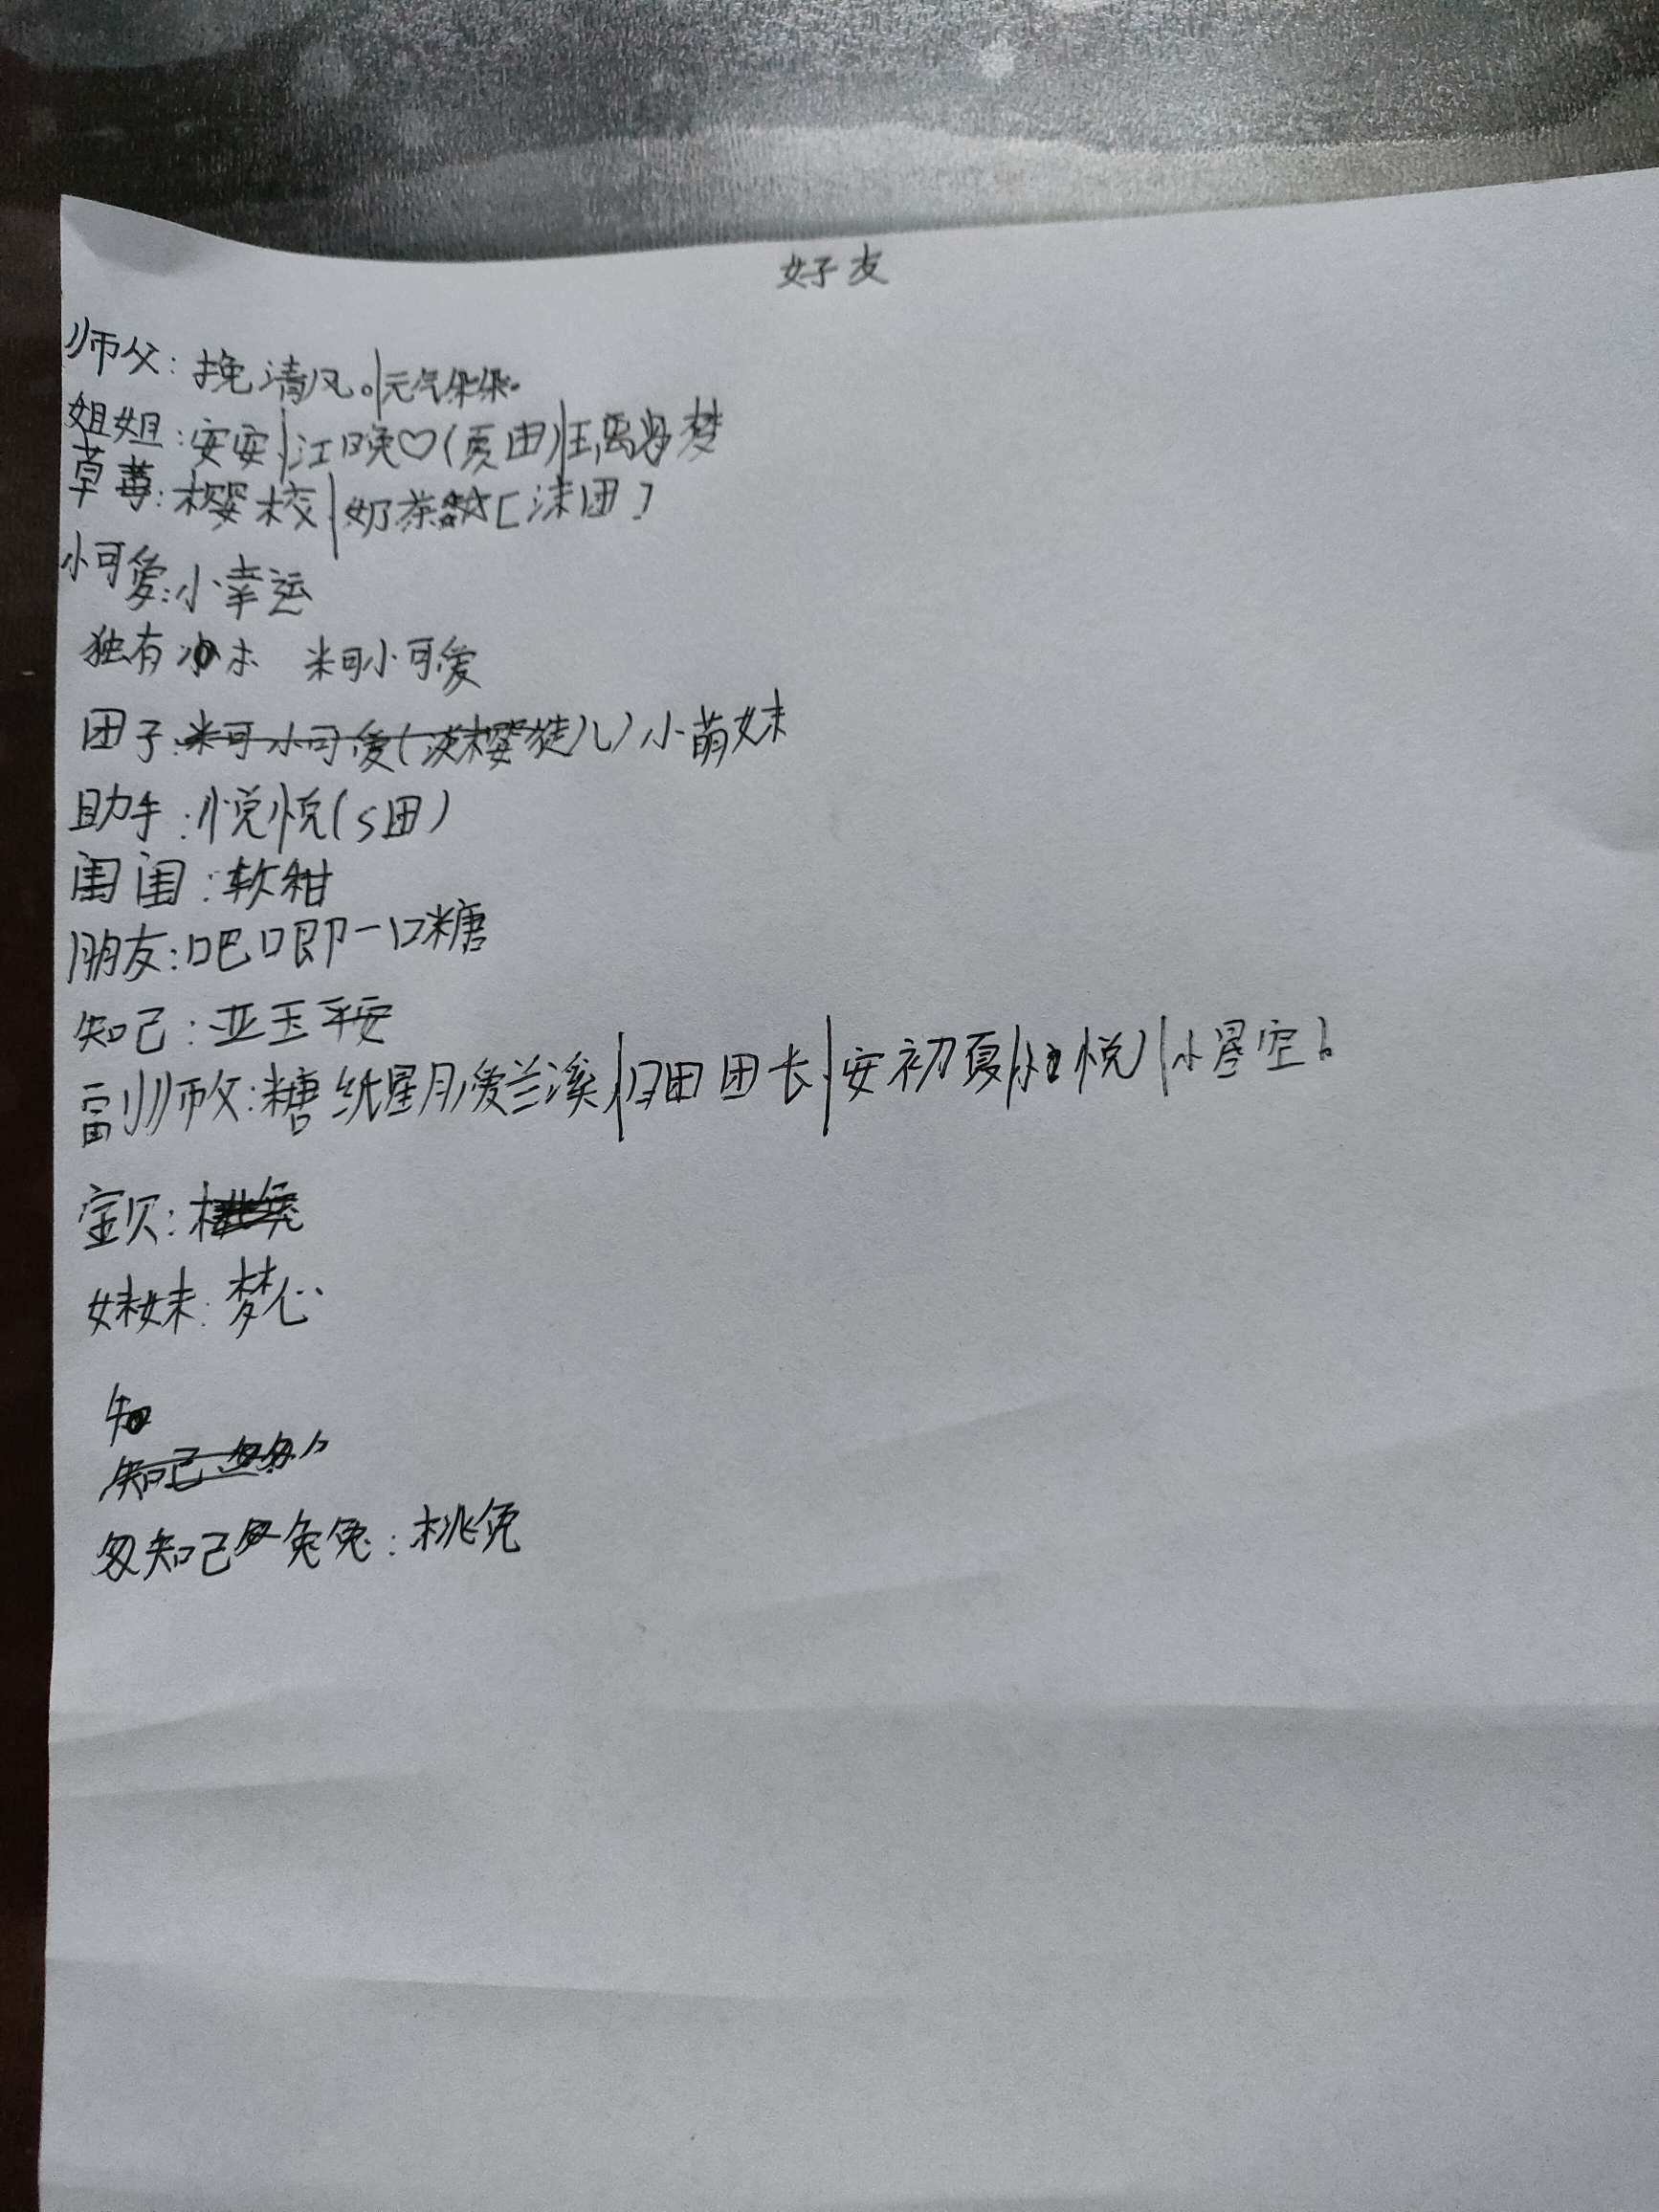 好友
师父：挽清风。|元气朵朵.
姐姐：安安|江晚♡(夏团)|狂离梦
草莓：樱校|奶茶[沫团]
小可爱：小幸运
独有 米可小可爱
团子：米可小可爱(淡樱徒儿)小萌妹
助手：悦悦(S团)
闺闺：软甜
朋友：吧唧一口糖
知己：亚玉平安
副师父：糖纸星月,爱兰溪|归团团长|安初夏|悦|小星空
宝贝：桃兔
妹妹：梦心
知
知己
知己 兔兔：桃兔